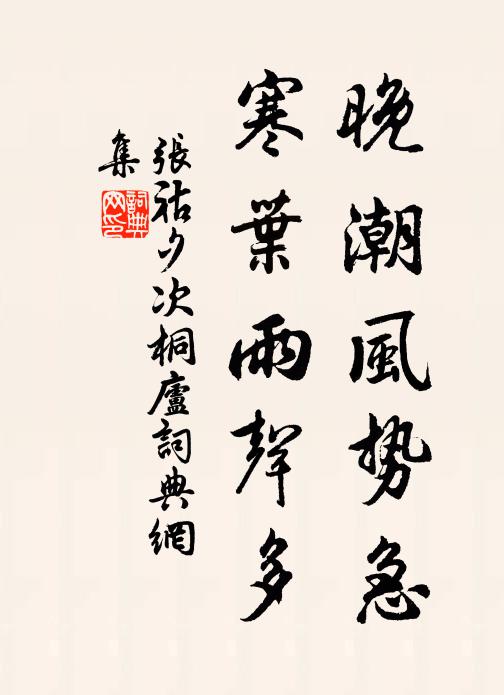 晚潮風势急
寒葉雨聲多
張祜夕次桐廬詞典網
集
詞典网印